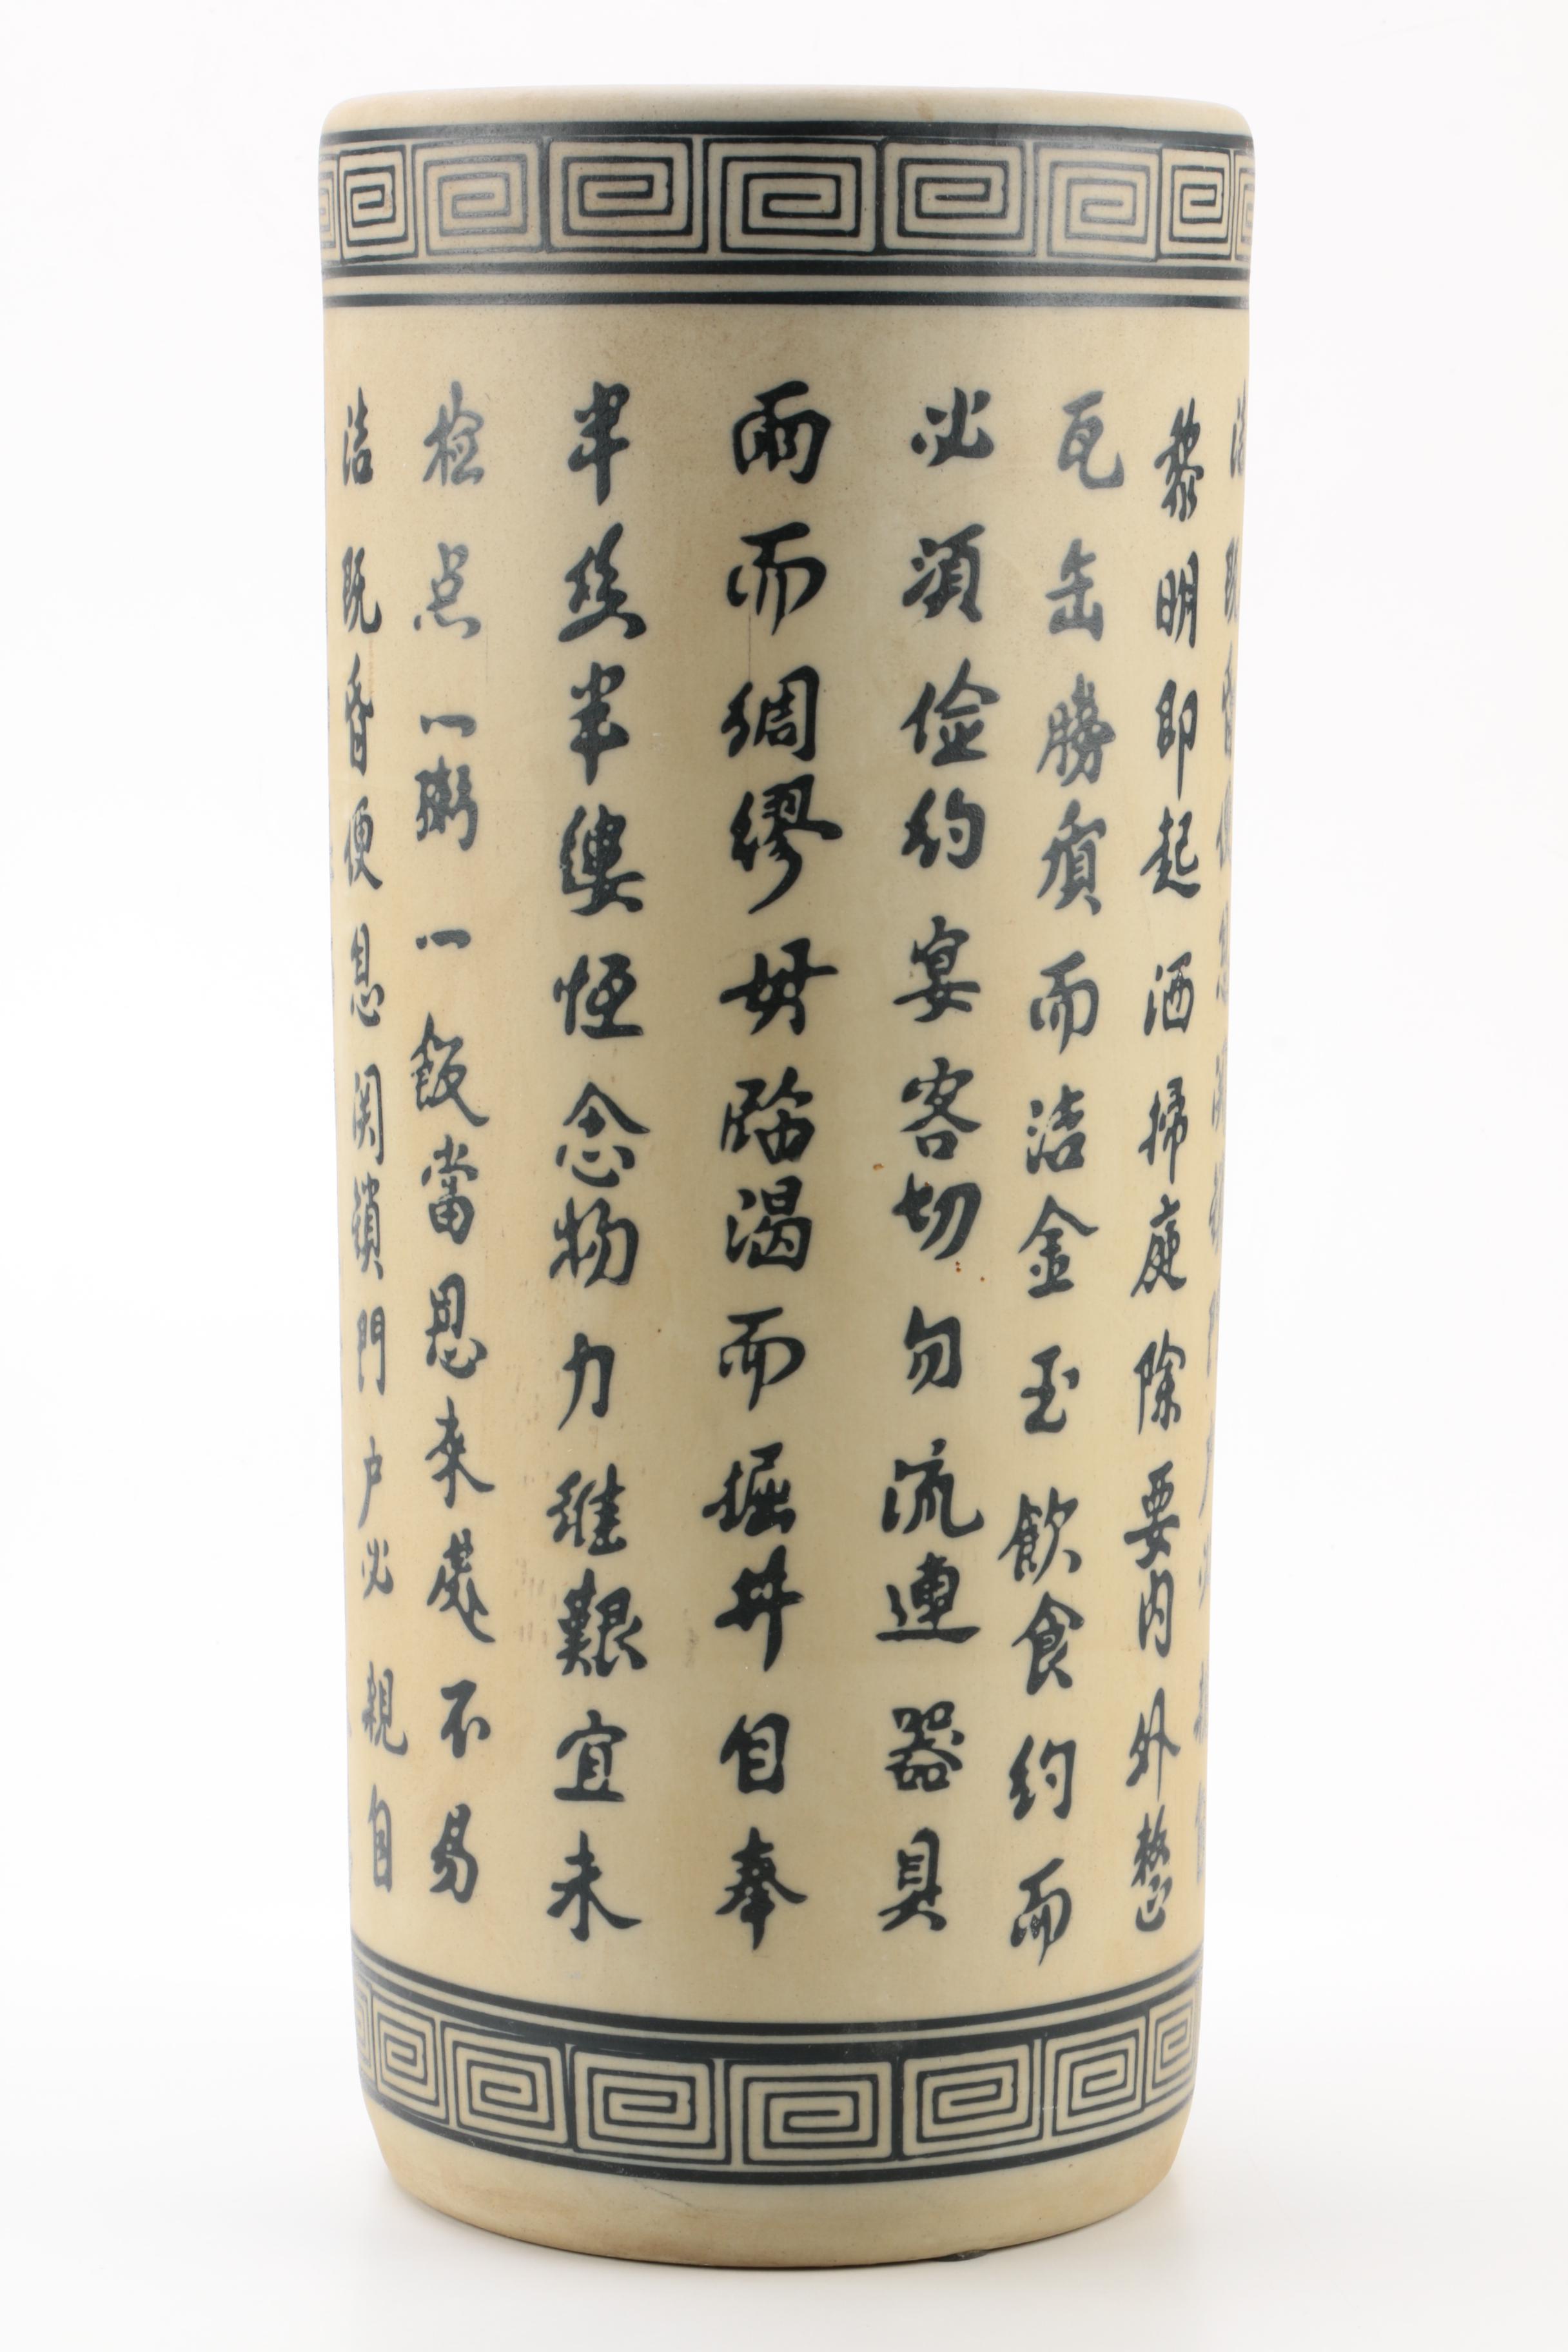 洁既昏便息関鎖門户必親自
检点一粥一飯當思来處不易
半絲半縷恒念物力維艱宜未
雨而綢繆毋臨渴而掘井自奉
必須俭約宴客切勿流連器具
瓦缶勝質而洁金玉飲食約而
黎明即起洒掃庭除要内外整